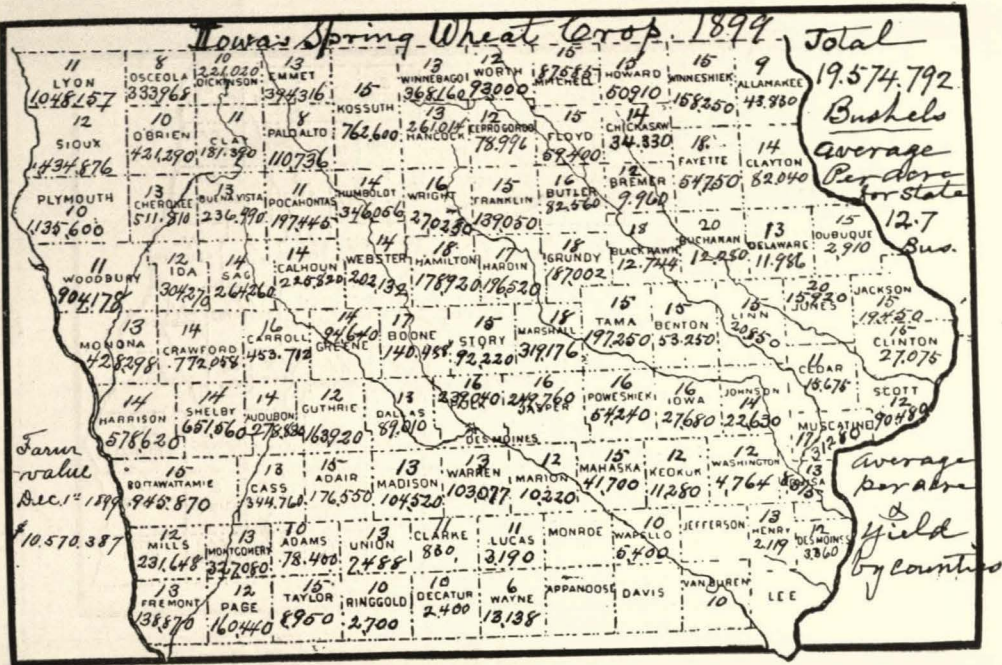 Iowa's Spring Wheat Crop. 1899
Total
19.574.792
Bushels
average
Per acre
for State
12.7
Bus.
11
LYON
1,048,157
8
OSCEOLA
333968
10
221,020
DICKINSON
13
EMMET
394316
15
KOSSUTH
762,600
13
WINNEBAGO
368160
12
WORTH
93,000
15
87,585
MITCHELL
15
HOWARD
50910
15
WINNESHIEK
158250
9
ALLAMAKEE
43.830
12
SIOUX
1434,876
10
O'BRIEN
421,290
11
CLAY
181,390
8
PALO ALTO
110,736
13
261,014
HANCOCK
12
CERRO GORDO
78,996
15
FLOYD
59,400
14
CHICKASAW
34.330
18
FAYETTE
54,750
14
CLAYTON
82,040
PLYMOUTH
10
1,135,600
13
CHEROKEE
511,810
13
BUENA VISTA
236,990
11
POCAHONTAS
197,445
14
HUMBOLDT
346,056
16
WRIGHT
270230
15
FRANKLIN
139050
16
BUTLER
82,560
12
BREMER
9,960
11
WOODBURY
904,178
12
IDA
30,4270
14
SAC
264,260
14
CALHOUN
225,820
14
WEBSTER
202,132
18
HAMILTON
178,920
17
HARDIN
196520
18
GRUNDY
187,002
18
BLACKHAWK
12,744
20
BUCHANAN
12,250
13
DELAWARE
11,986
15
DUBUQUE
2,910
13
MONONA
428298
14
CRAWFORD
772,058
16
CARROLL
453,712
14
94,640
GREENE
17
BOONE
140,488
15
STORY
92,220
18
MARSHALL
319,176
15
TAMA
197,250
15
BENTON
53,250
15
LINN
20,850
20
15,920
JONES
JACKSON
15
19,450
15
CLINTON
27,075
14
HARRISON
578620
14
SHELBY
651,560
14
AUDUBON
278,880
12
GUTHRIE
163920
13
DALLAS
89,010
16
239,040
POLK
16
249,760
JASPER
16
POWESHIEK
54,240
16
IOWA
27,680
JOHNSON
14
22,630
11
CEDAR
15,675
SCOTT
12
90,480
MUSCATINE
DES MOINES
Farm
value
Dec. 1st 1899
$10.570.387
15
POTTAWATTAMIE
945,870
13
CASS
344,760
15
ADAIR
176,550
13
MADISON
104520
13
WARREN
103,077
12
MARION
10,220
15
MAHASKA
41,700
12
KEOKUK
11,280
12
WASHINGTON
4,764
13
LOUISA
12
MILLS
231,648
13
MONTGOMERY
327,080
10
ADAMS
78,400
13
UNION
7,488
11
CLARKE
830
11
LUCAS
3,190
MONROE
10
WAPELLO
5,400
JEFFERSON
13
HENRY
2,119
12
DES MOINES
3,360
13
FREMONT
138,870
12
PAGE
160,440
15
TAYLOR
8,950
10
RINGGOLD
2,700
10
DECATUR
2,400
6
WAYNE
13,138
APPANOOSE
DAVIS
VAN BUREN
10
LEE
average
per acre
&
yield
by counties